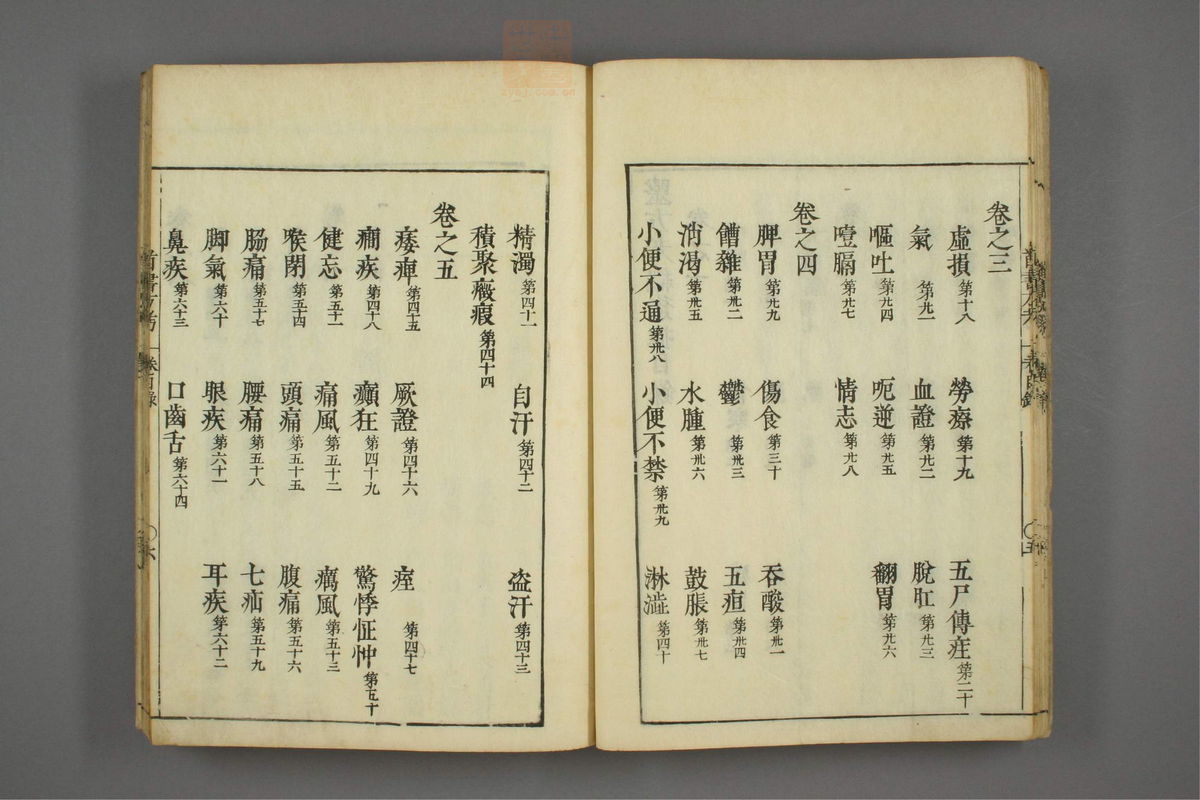 卷之三
虛損第十八 勞瘵第十九 五尸傳疰第二十
氣第廿一 血證第廿二 脫肛第廿三
嘔吐第廿四 呃逆第廿五 翻胃第廿六
噎膈第廿七 情志第廿八
卷之四
脾胃第廿九 傷食第三十 吞酸第卅一
饐雜第卅二 鬱第卅三 五疸第卅四
消渴第卅五 水腫第卅六 鼓脹第卅七
小便不通第卅八 小便不禁第卅九 淋澁第四十
精濁第四十一 自汗第四十二 盗汗第四十三
積聚癥瘕第四十四
卷之五
痿痺第四十五 厥證第四十六 痓第四十七
癎疾第四十八 癲狂第四十九 驚悸怔忡第五十
健忘第五十一 痛風第五十二 癘風第五十三
喉閉第五十四 頭痛第五十五 腹痛第五十六
脇痛第五十七 腰痛第五十八 七疝第五十九
脚氣第六十 眼疾第六十一 耳疾第六十二
鼻疾第六十三 口齒舌第六十四